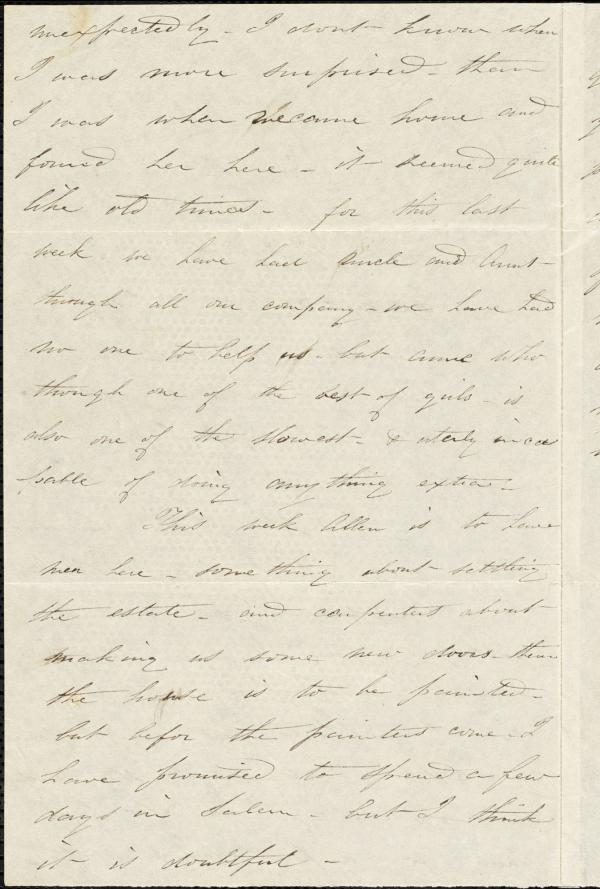 unexpectedly - I dont know when
I was more surprised - than
I was when we came home and
found her here - it seemed quite
like old times - for this last
week we have had Uncle and Aunt -
through all our company - we have had
no one to help us - but Anne who
though one of the best of girls - is
also one of the slowest - & uterly inca
pable of doing any thing extra -
This week Allen is to have
men here - some thing about settling
the estate - and carpenters about
making us some new doors - then
the house is to be painted -
but befor the painters come - I
have promised to spend a few
days in Salem - but I think
it is doubtful -